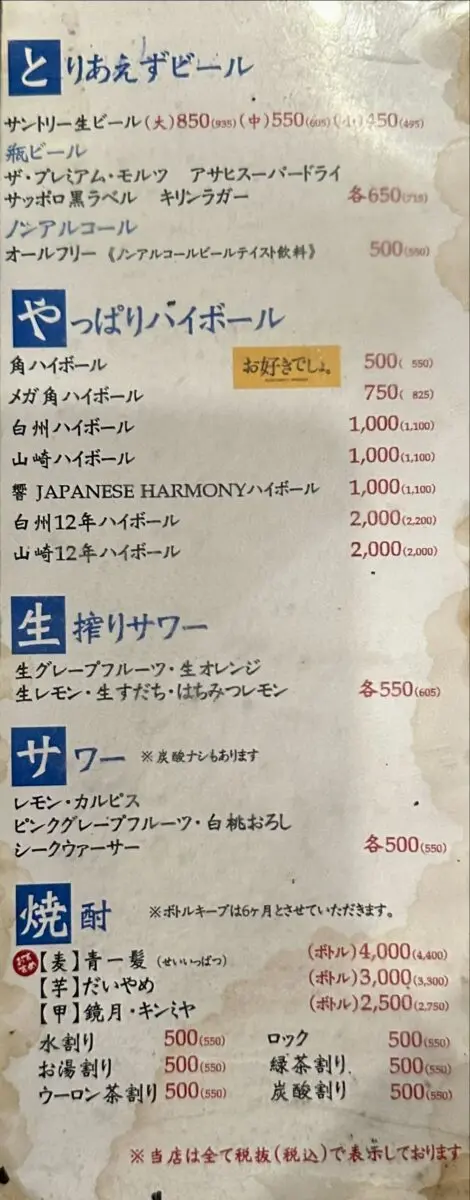 とりあえずビール
サントリー生ビール(大)850(935)(中)550(605)(小)450(495)
瓶ビール
ザ・プレミアム・モルツ アサヒスーパードライ
サッポロ黒ラベル キリンラガー 各650(715)
ノンアルコール
オールフリー《ノンアルコールビールテイスト飲料》 500(550)
やっぱりハイボール
角ハイボール お好きでしょ。 500(550)
メガ角ハイボール 750(825)
白州ハイボール 1,000(1,100)
山崎ハイボール 1,000(1,100)
響 JAPANESE HARMONYハイボール 1,000(1,100)
白州12年ハイボール 2,000(2,200)
山崎12年ハイボール 2,000(2,000)
生搾りサワー
生グレープフルーツ・生オレンジ
生レモン・生すだち・はちみつレモン 各550(605)
サワー ※炭酸ナシもあります
レモン・カルピス
ピンクグレープフルーツ・白桃おろし
シークヮーサー 各500(550)
焼酎 ※ボトルキープは6ヶ月とさせていただきます。
【麦】青一髪(せいいっぱつ) (ボトル)4,000(4,400)
【芋】だいやめ (ボトル)3,000(3,300)
【甲】鏡月・キンミヤ (ボトル)2,500(2,750)
水割り 500(550) ロック 500(550)
お湯割り 500(550) 緑茶割り 500(550)
ウーロン茶割り 500(550) 炭酸割り 500(550)
※当店は全て税抜(税込)で表示しております